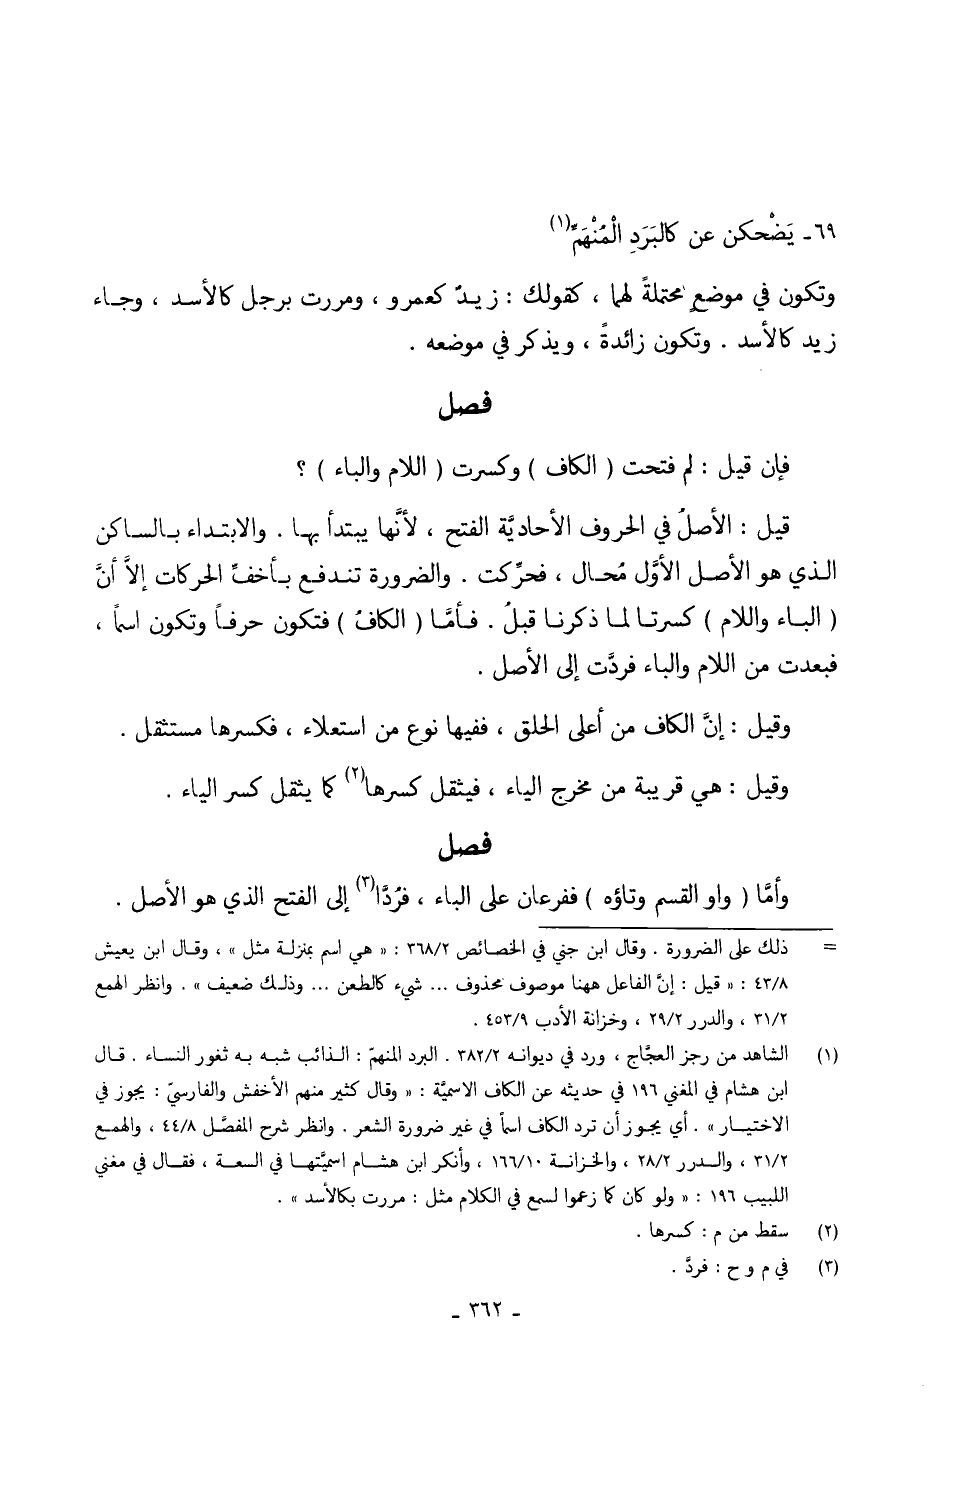 ٦٩ـ يَضْحكن عن كالبَرَدِ الْمُنْهَمِّ(١)
وتكون في موضعٍ محتملةً لهما ، كقولك : زيدٌ كعمرو ، ومررت برجل كالأسد ، وجاء
زيد كالأسد . وتكون زائدةً ، ويذكر في موضعه .
فصل
فإن قيل : لم فتحت ( الكاف ) وكسرت ( اللام والباء ) ؟
قيل : الأصلُ في الحروف الأحاديَّة الفتح ، لأنَّها يبتدأ بها . والابتداء بالساكن
الذي هو الأصل الأوَّل مُحال ، فحرِّكت . والضرورة تندفع بأخفِّ الحركات إلاَّ أنَّ
( الباء واللام ) كسرتا لما ذكرنا قبلُ . فأمَّا ( الكافُ ) فتكون حرفاً وتكون اسماً ،
فبعدت من اللام والباء فردَّت إلى الأصل .
وقيل : إنَّ الكاف من أعلى الحلق ، ففيها نوع من استعلاء ، فكسرها مستثقل .
وقيل : هي قريبة من مخرج الياء ، فيثقل كسرها(٢) كما يثقل كسر الياء .
فصل
وأمَّا ( واو القسم وتاؤه ) ففرعان على الباء ، فرُدَّا(٣) إلى الفتح الذي هو الأصل .
= ذلك على الضرورة . وقال ابن جني في الخصائص ٣٦٨/٢ : « هي اسم بمنزلة مثل » ، وقال ابن يعيش
٤٣/٨ : « قيل : إنَّ الفاعل ههنا موصوف محذوف ... شيء كالطعن ... وذلك ضعيف » . وانظر الهمع
٣١/٢ ، والدرر ٢٩/٢ ، وخزانة الأدب ٤٥٣/٩ .
(١) الشاهد من رجز العجَّاج ، ورد في ديوانه ٣٨٢/٢ . البرد المنهمّ : الذائب شبه به ثغور النساء . قال
ابن هشام في المغني ١٩٦ في حديثه عن الكاف الاسميَّة : « وقال كثير منهم الأخفش والفارسيّ : يجوز في
الاختيار » . أي يجوز أن ترد الكاف اسماً في غير ضرورة الشعر . وانظر شرح المفصَّل ٤٤/٨ ، والهمع
٣١/٢ ، والدرر ٢٨/٢ ، والخزانة ١٦٦/١٠ ، وأنكر ابن هشام اسميَّتها في السعة ، فقال في مغني
اللبيب ١٩٦ : « ولو كان كما زعموا لسمع في الكلام مثل : مررت بكالأسد » .
(٢) سقط من م : كسرها .
(٣) في م و ح : فردَّ .
ـ ٣٦٢ ـ